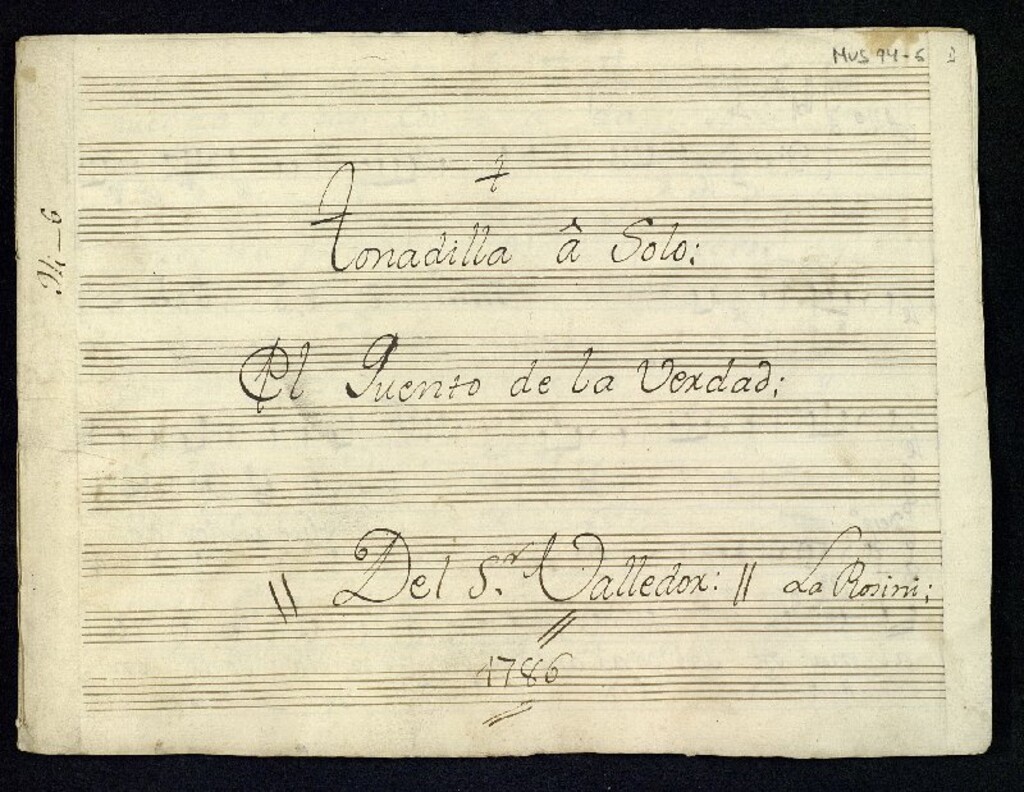 MUS 94-6
94-6
Tonadilla â Solo;
El Quento de la Verdad;
// Del S.r Valledor: // La Rosini;
1786